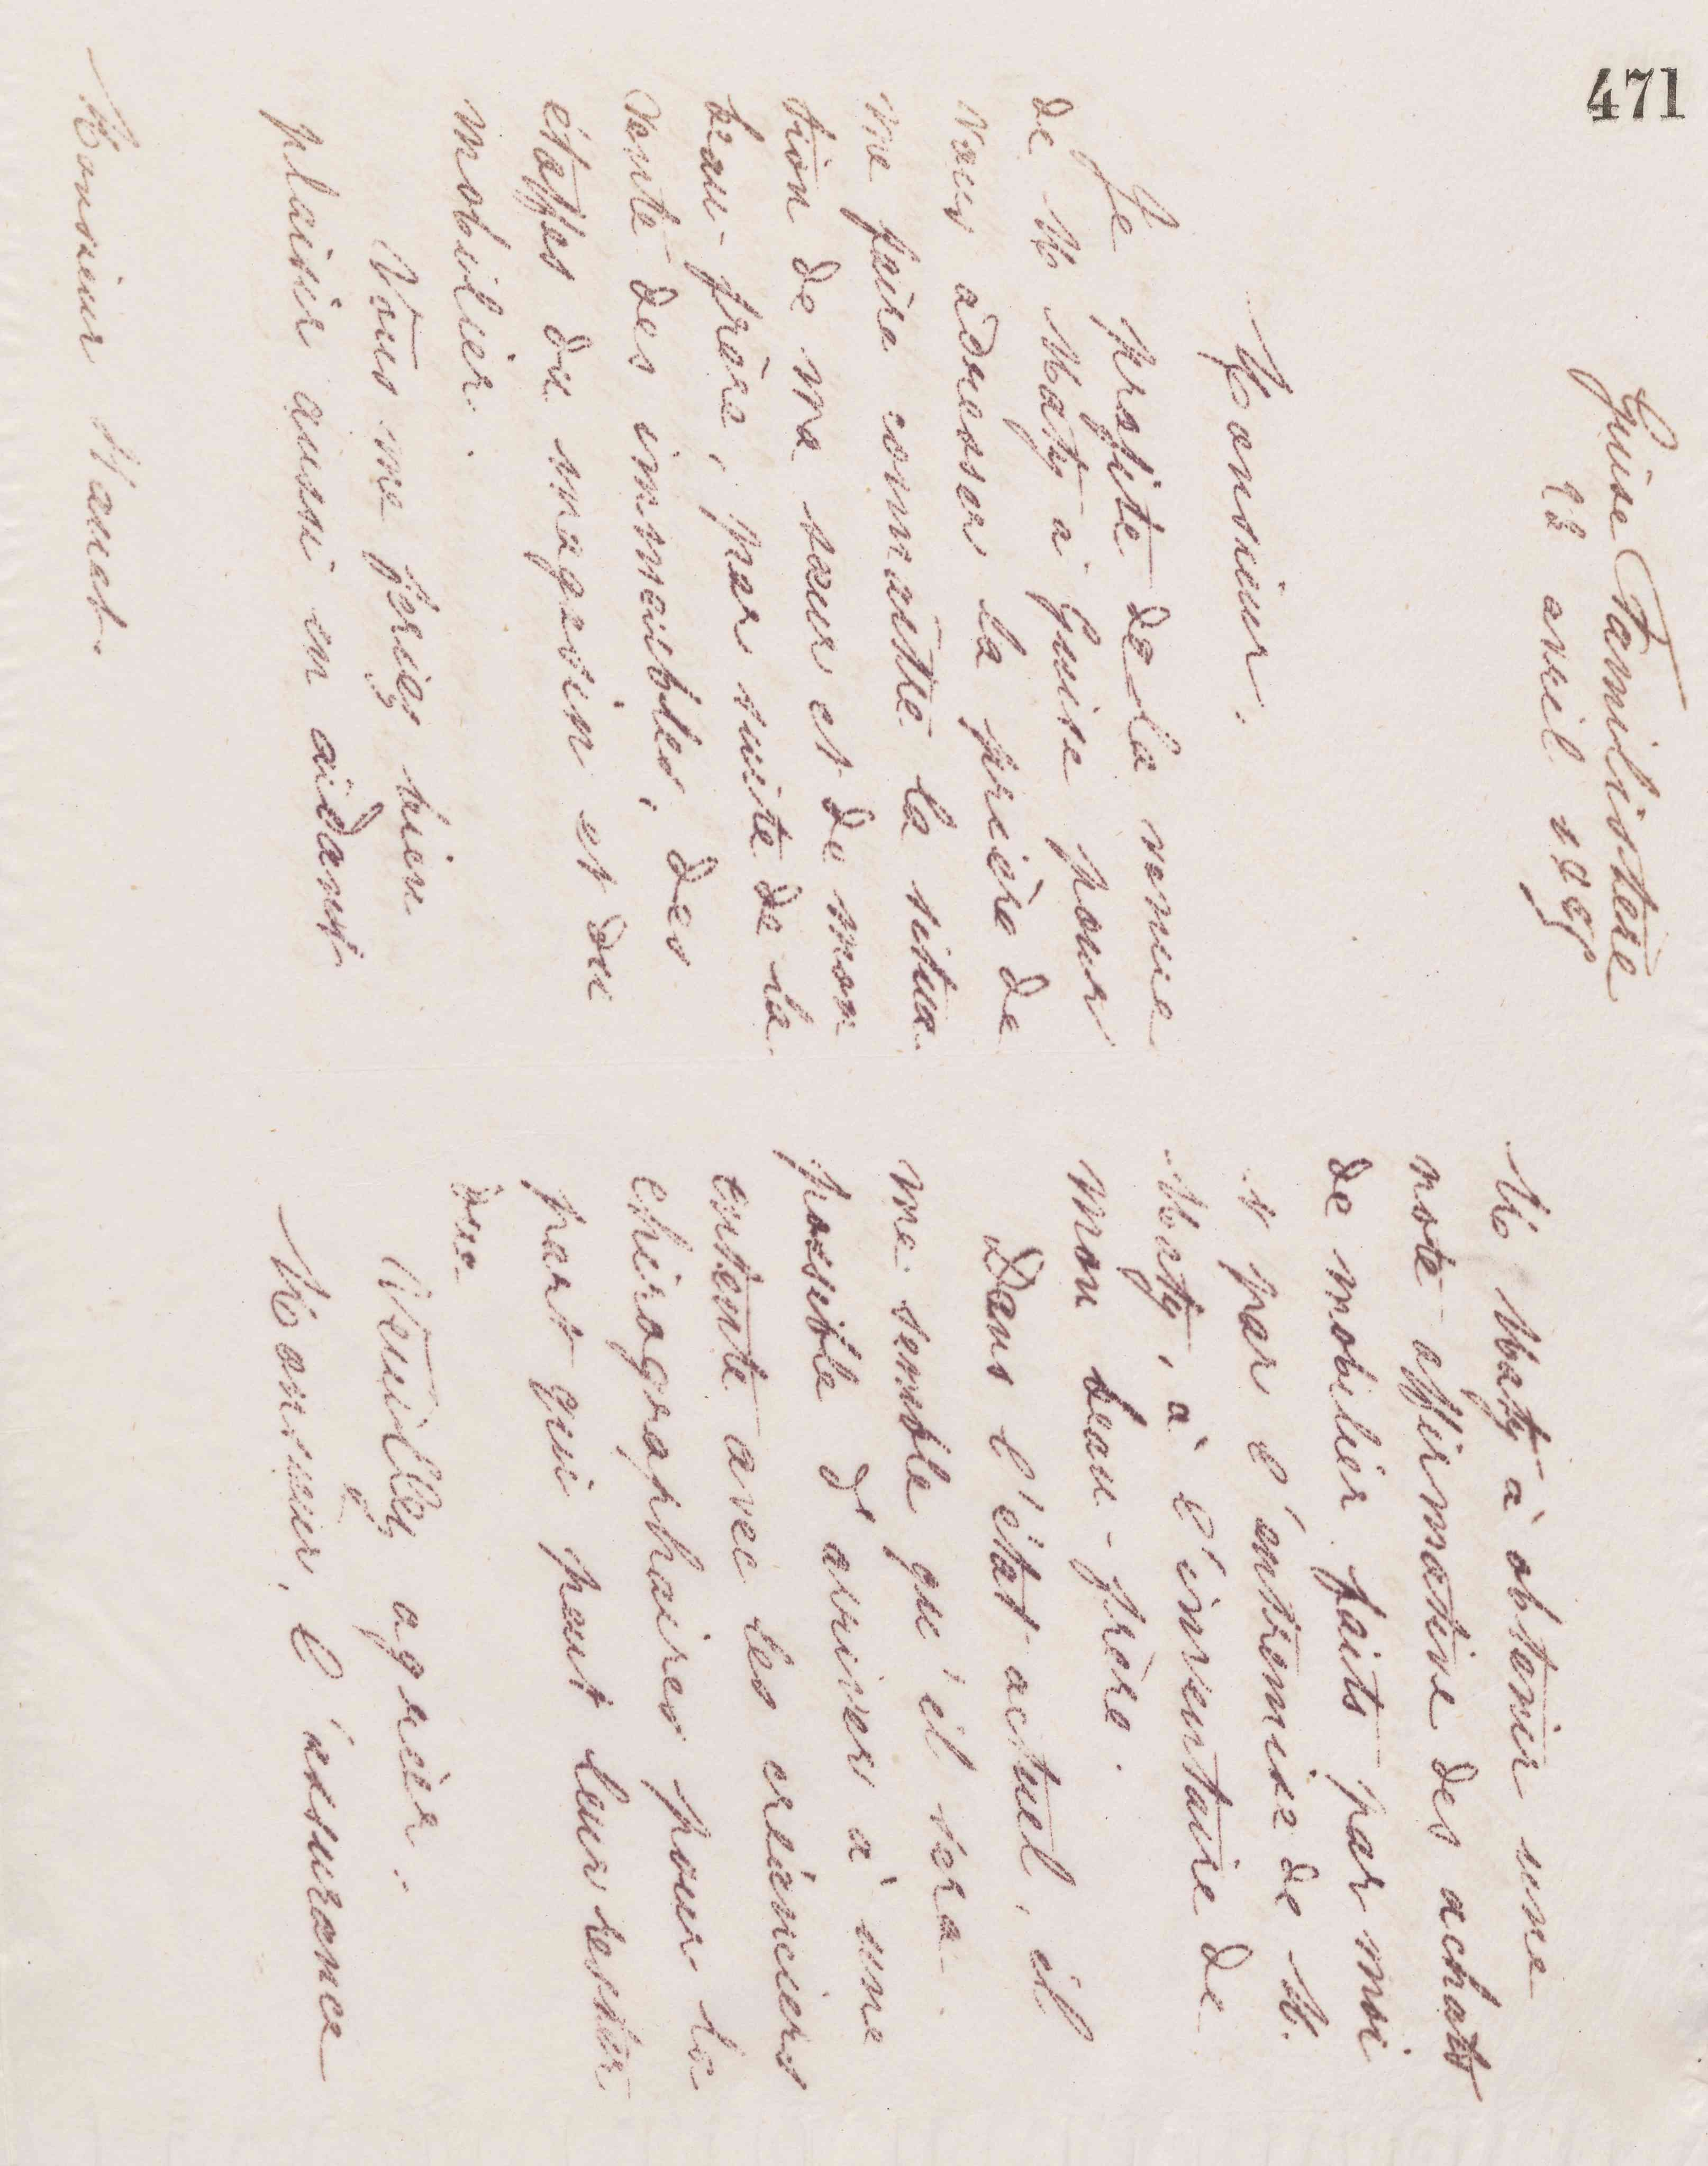 471
Guise Familistère
12 avril 1889
Monsieur.
Je profite de la venue
de M Maty à Guise pour
vous adresser la prière de
me faire connaître la situa-
tion de ma sœur et de mon
beau-frère, par suite de la
vente des immeubles, des
étoffes du magasin et du
mobilier.
Vous me feriez bien
plaisir aussi en aidant
Monsieur
M Maty à obtenir une
note affirmative des achats
de mobilier faits par moi
& par l'entremise de M.
Maty, à l'inventaire de
mon beau-frère.
Dans l'état actuel, il
me semble qu'il sera
possible d'arriver à une
entente avec les créanciers
chirographaires pour la
part qui peut leur rester
due
Veuillez agréer.
Monsieur, l'assurance